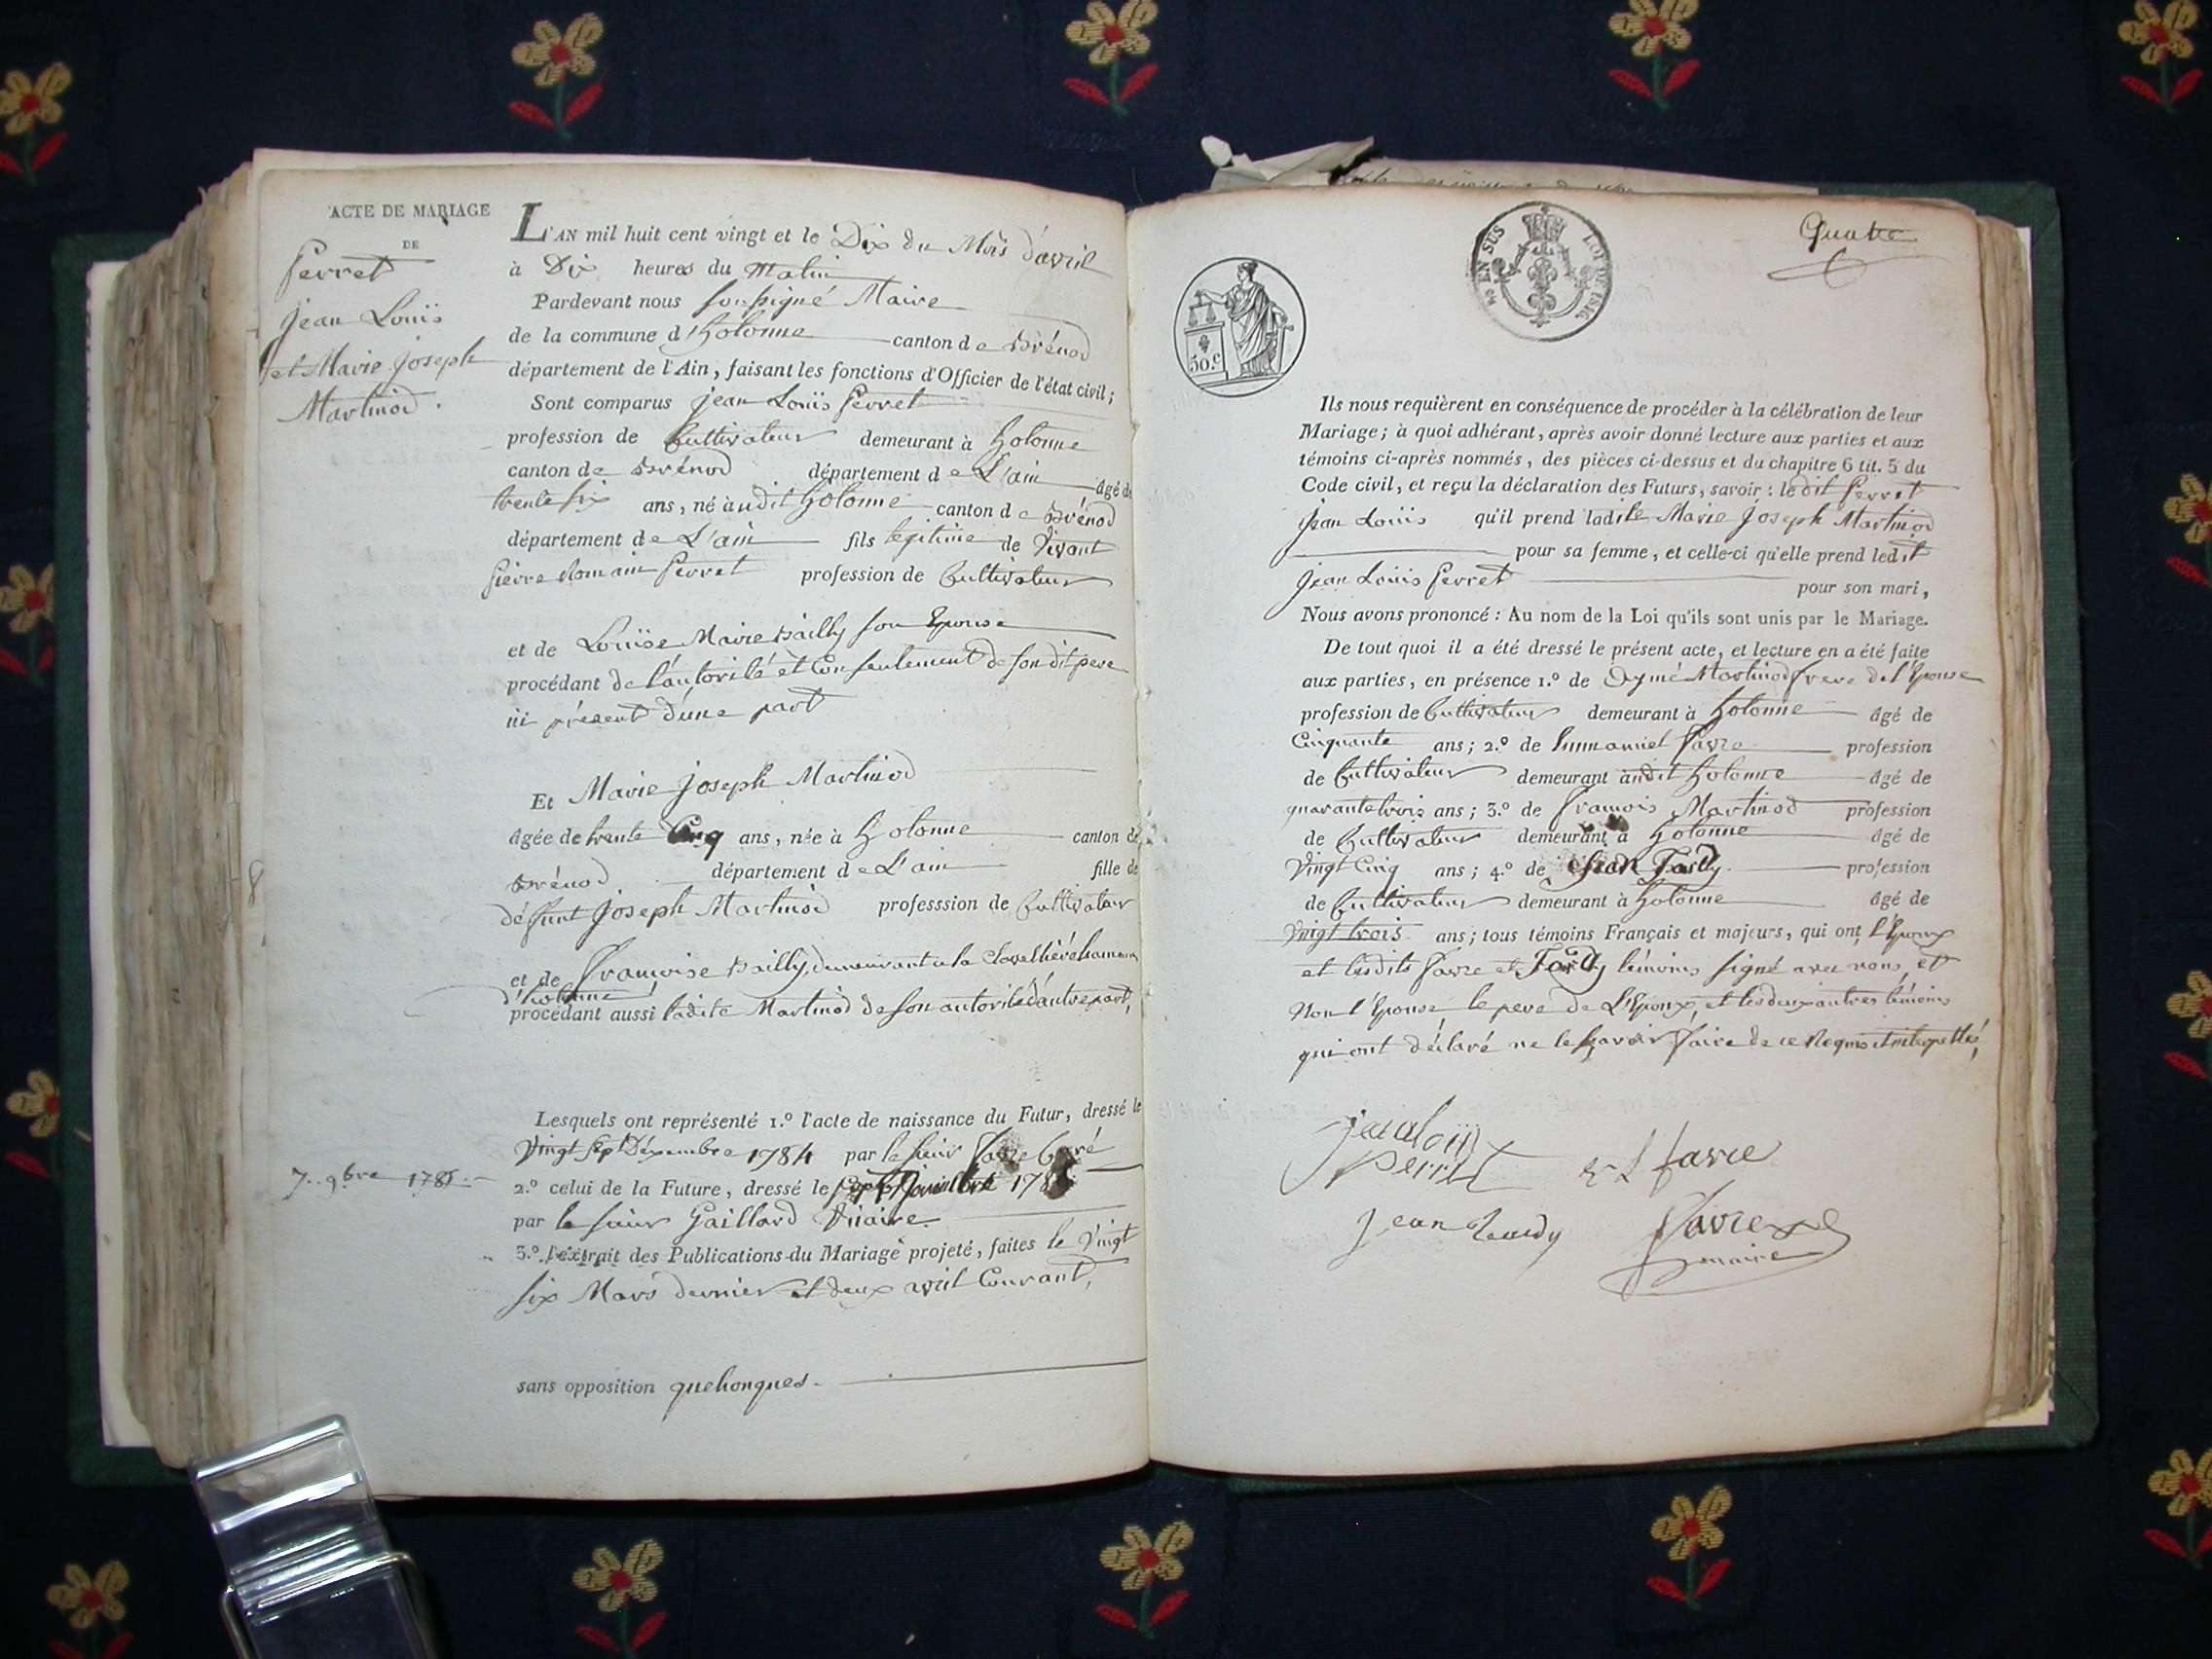 ACTE DE MARIAGE
DE
Perret
jean Louis
et Marie joseph
Martinod.
L'AN mil huit cent vingt et le Dix du Mois d'avril
à Dix heures du matin
Pardevant nous soussigné Maire
de la commune d'hotonne canton de Brénod
département de l'Ain, faisant les fonctions d'Officier de l'état civil;
Sont comparus jean Louis Perret
profession de Cultivateur demeurant à hotonne
canton de Brénod département de L'ain âgé de
trente six ans, né audit hotonne canton de Brénod
département de L'ain fils légitime de vivant
pierre Romain Perret profession de Cultivateur
et de Louise Marie Bailly son Epouse
procédant de l'autorité et Consentement de son dit pere
ici présent d'une part
Et Marie joseph Martinod
âgée de trente Cinq ans, née à hotonne canton de
Brénod département de L'ain fille de
défunt joseph Martinod professsion de Cultivateur
et de françoise Bailly, demeurant a la
d'hotonne
procédant aussi ladite Martinod de son autorité d'autre part,
Lesquels ont représenté 1.º l'acte de naissance du Futur, dressé le
vingt sept Décembre 1784 par le sieur favre Curé
7.. 9bre 178
2.º celui de la Future, dressé le sept Novembre 178
par le sieur Gaillard Vicaire
3.º l'extrait des Publications du Mariage projeté, faites le vingt
six Mars dernier et deux avril Courant,
sans opposition quelconques.
Quatre
EN SUS LOI DE 1816
50.c
Ils nous requièrent en conséquence de procéder à la célébration de leur
Mariage; à quoi adhérant, après avoir donné lecture aux parties et aux
témoins ci-après nommés, des pièces ci-dessus et du chapitre 6 tit. 5 du
Code civil, et reçu la déclaration des Futurs, savoir: ledit Perret
jean Louis qu'il prend ladite Marie joseph Martinod
pour sa femme, et celle-ci qu'elle prend ledit
jean Louis Perret pour son mari,
Nous avons prononcé: Au nom de la Loi qu'ils sont unis par le Mariage.
De tout quoi il a été dressé le présent acte, et lecture en a été faite
aux parties, en présence 1.º de Aymé Martinod frere de l'Epouse
profession de Cultivateur demeurant à hotonne âgé de
Cinquante ans; 2.º de Emmanuel favre profession
de Cultivateur demeurant audit hotonne âgé de
quarante trois ans; 3.º de françois Martinod profession
de Cultivateur demeurant à hotonne âgé de
vingt Cinq ans; 4.º de Jean Tardy profession
de Cultivateur demeurant à hotonne âgé de
vingt trois ans; tous témoins Français et majeurs, qui ont l'Epoux
et lesdits favre et Tardy témoins signé avec nous, et
Non l'Epouse, le pere de L'Epoux, et les deux autres témoins
qui ont déclaré ne le savoir faire de ce Requis et interpellés,
jean loïis
perret
E L favre
jean tardy
favre
maire